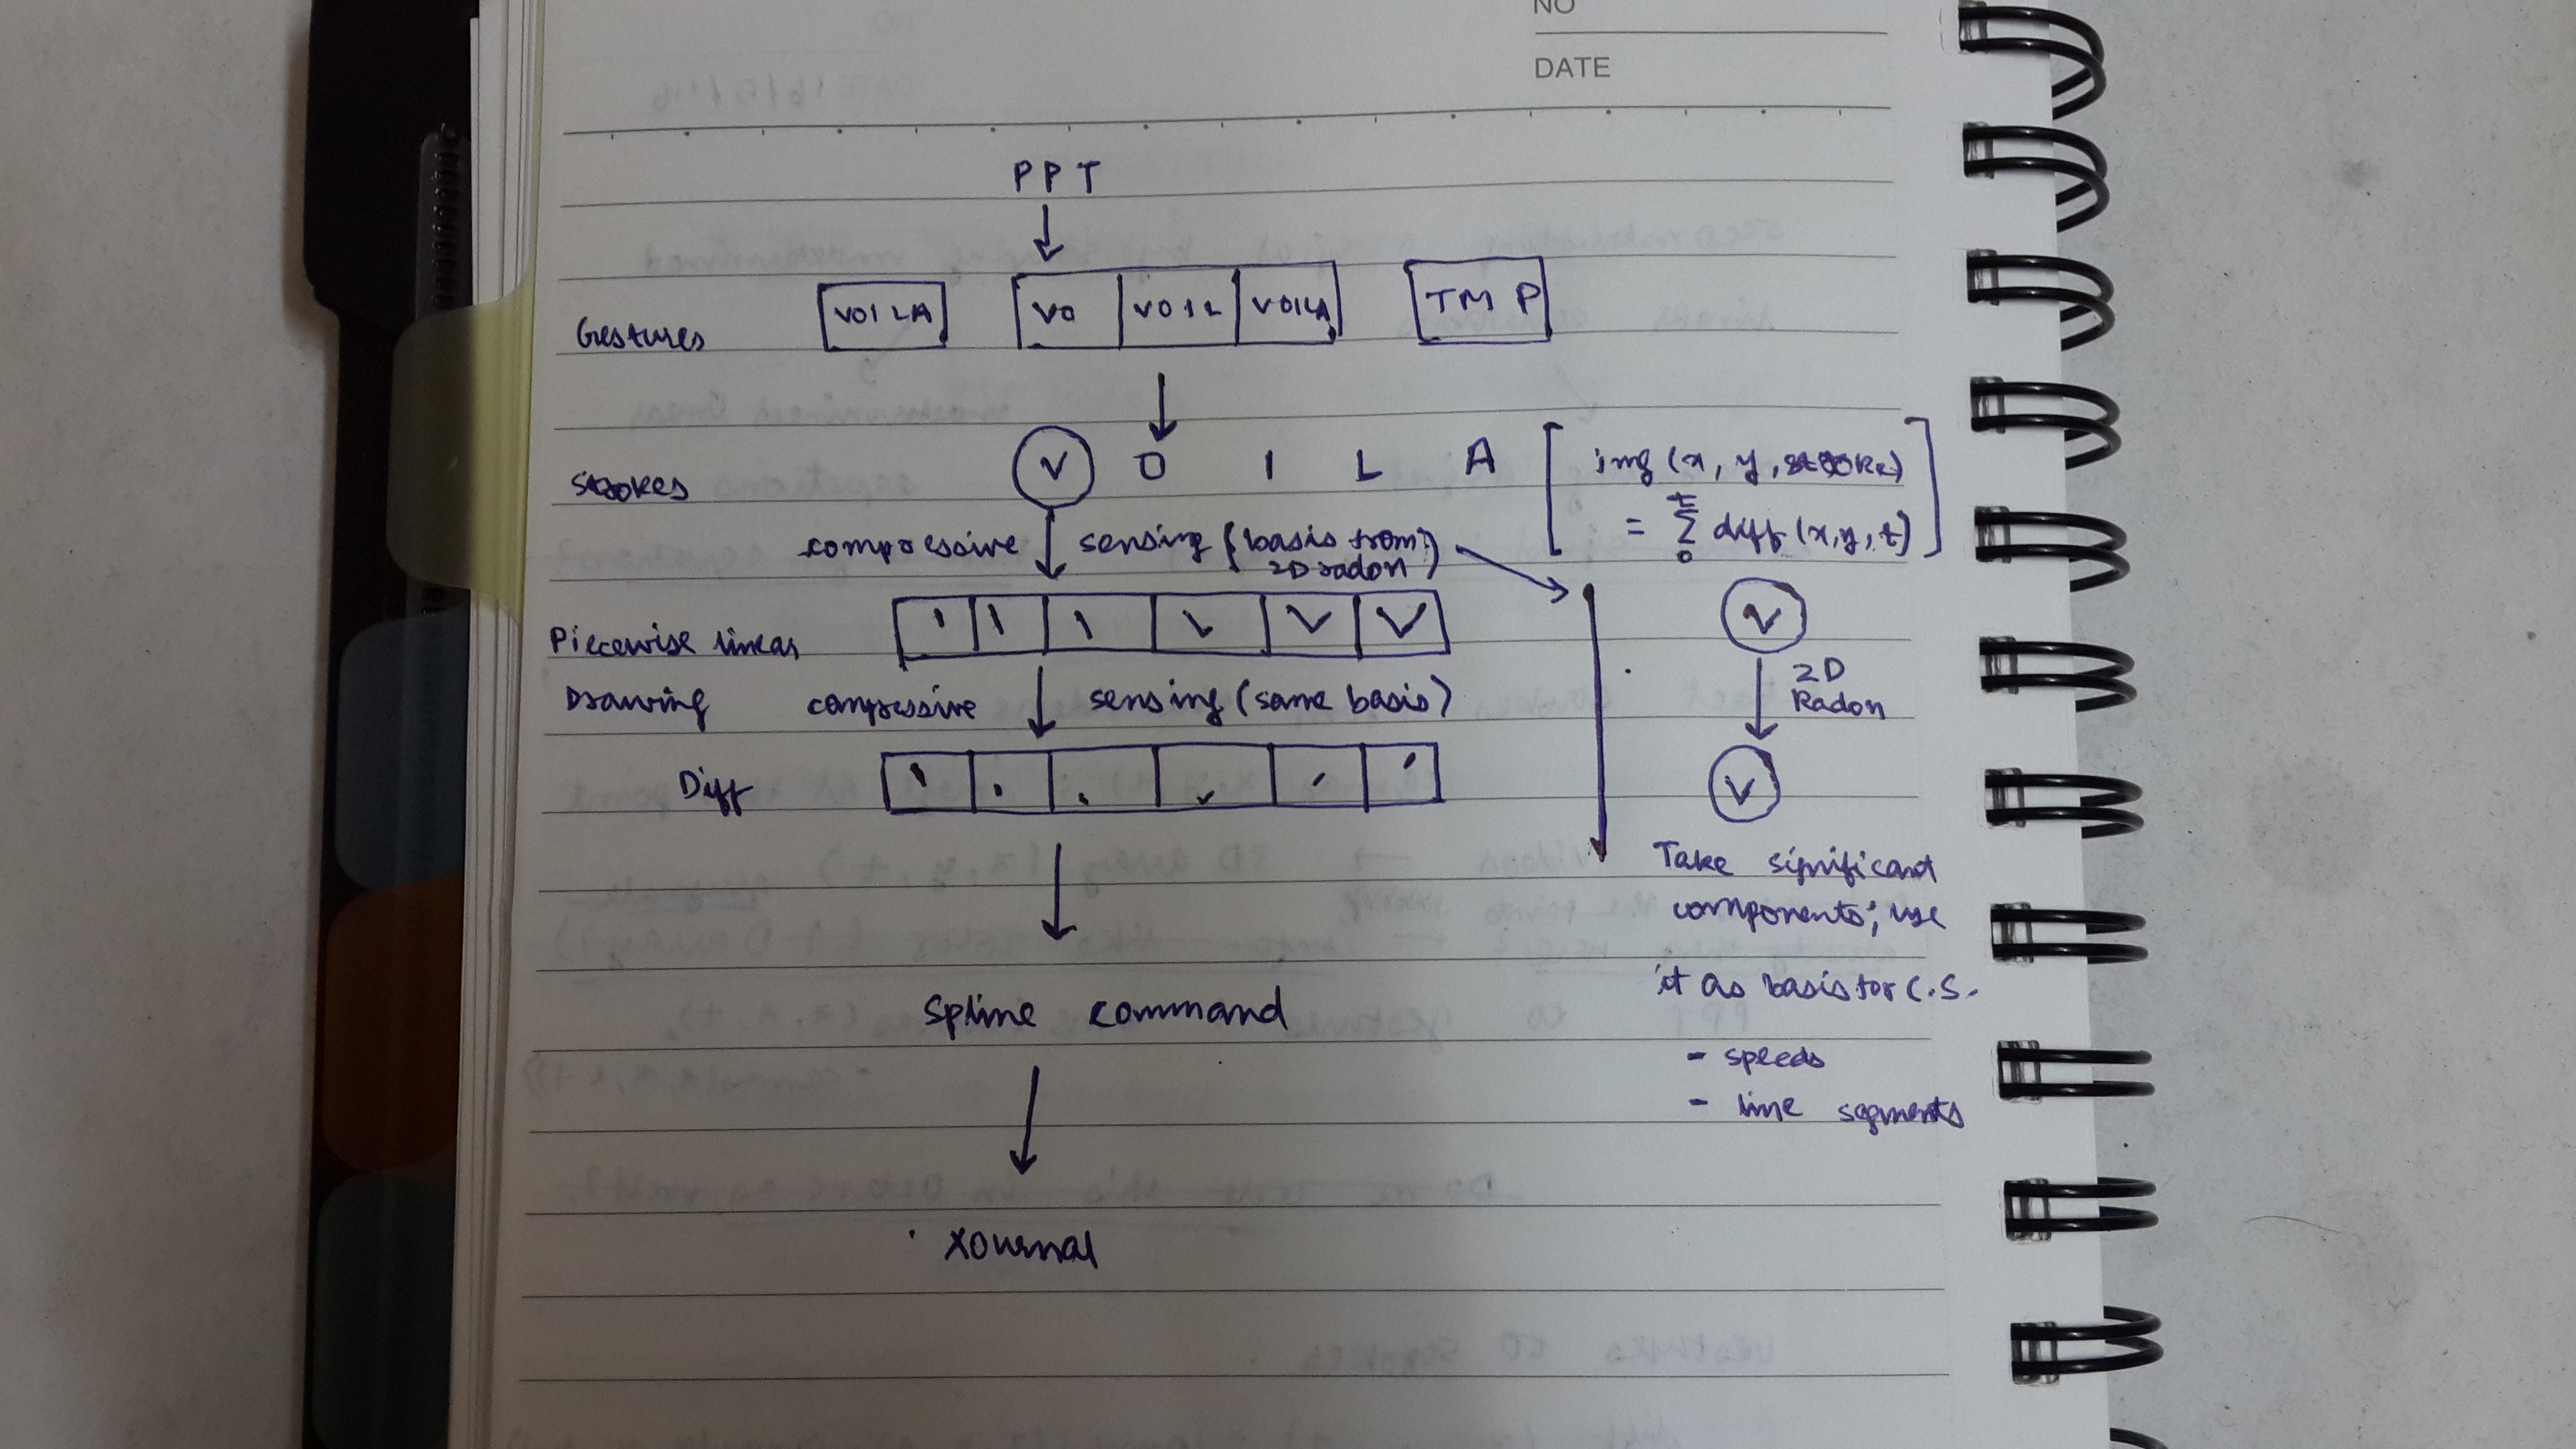 NO
DATE
PPT
Gestures
VOILA
VO
VOIL
VOILA
TMP
Strokes
V O I L A
img (x, y, stroke)
= t Σ 0 diff (x, y, t)
compressive sensing (basis from
2D radon)
Piecewise linear
V
2D
Radon
Drawing
compressive sensing (same basis)
Diff
V
Take significant
components; use
it as basis for C.S.
- speeds
- line segments
Spline command
Xournal